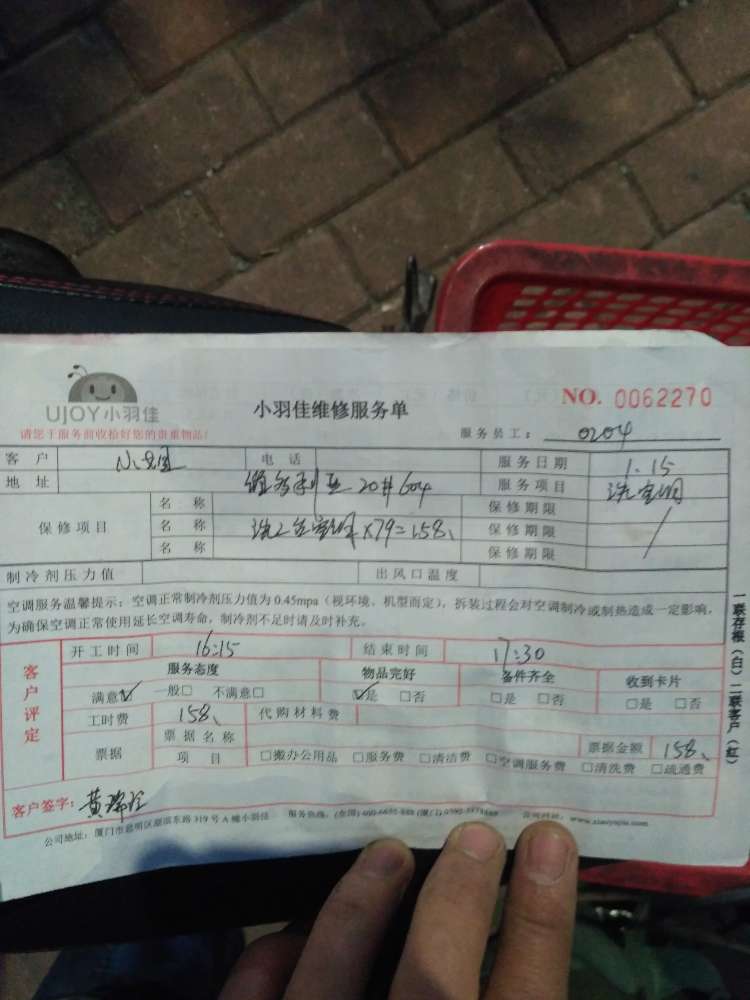 UJOY小羽佳
小羽佳维修服务单
NO. 0062270
请您于服务前收拾好您的贵重物品！
服务员工： 0204
客 户
电 话
服务日期 1.15
地 址 20# 604
服务项目 洗空调
保修项目
名 称
保修期限
名 称 洗2台空调×79=158、
保修期限
名 称
保修期限
制冷剂压力值
出风口温度
空调服务温馨提示：空调正常制冷剂压力值为0.45mpa（视环境、机型而定），拆装过程会对空调制冷或制热造成一定影响，
为确保空调正常使用延长空调寿命，制冷剂不足时请及时补充。
客户评定
开工时间 16:15
结束时间 17:30
服务态度
物品完好
备件齐全
收到卡片
满意☑ 一般□ 不满意□
☑是 □否
□是 □否
□是 □否
工时费 158、
代购材料费
票据
票据名称
票据金额 158、
项 目
□搬办公用品 □服务费 □清洁费 □空调服务费 □清洗费 □疏通费
客户签字：
公司地址：厦门市思明区 319号A幢小羽佳
服务热线：(全国)
一联存根（白）二联客户（红）